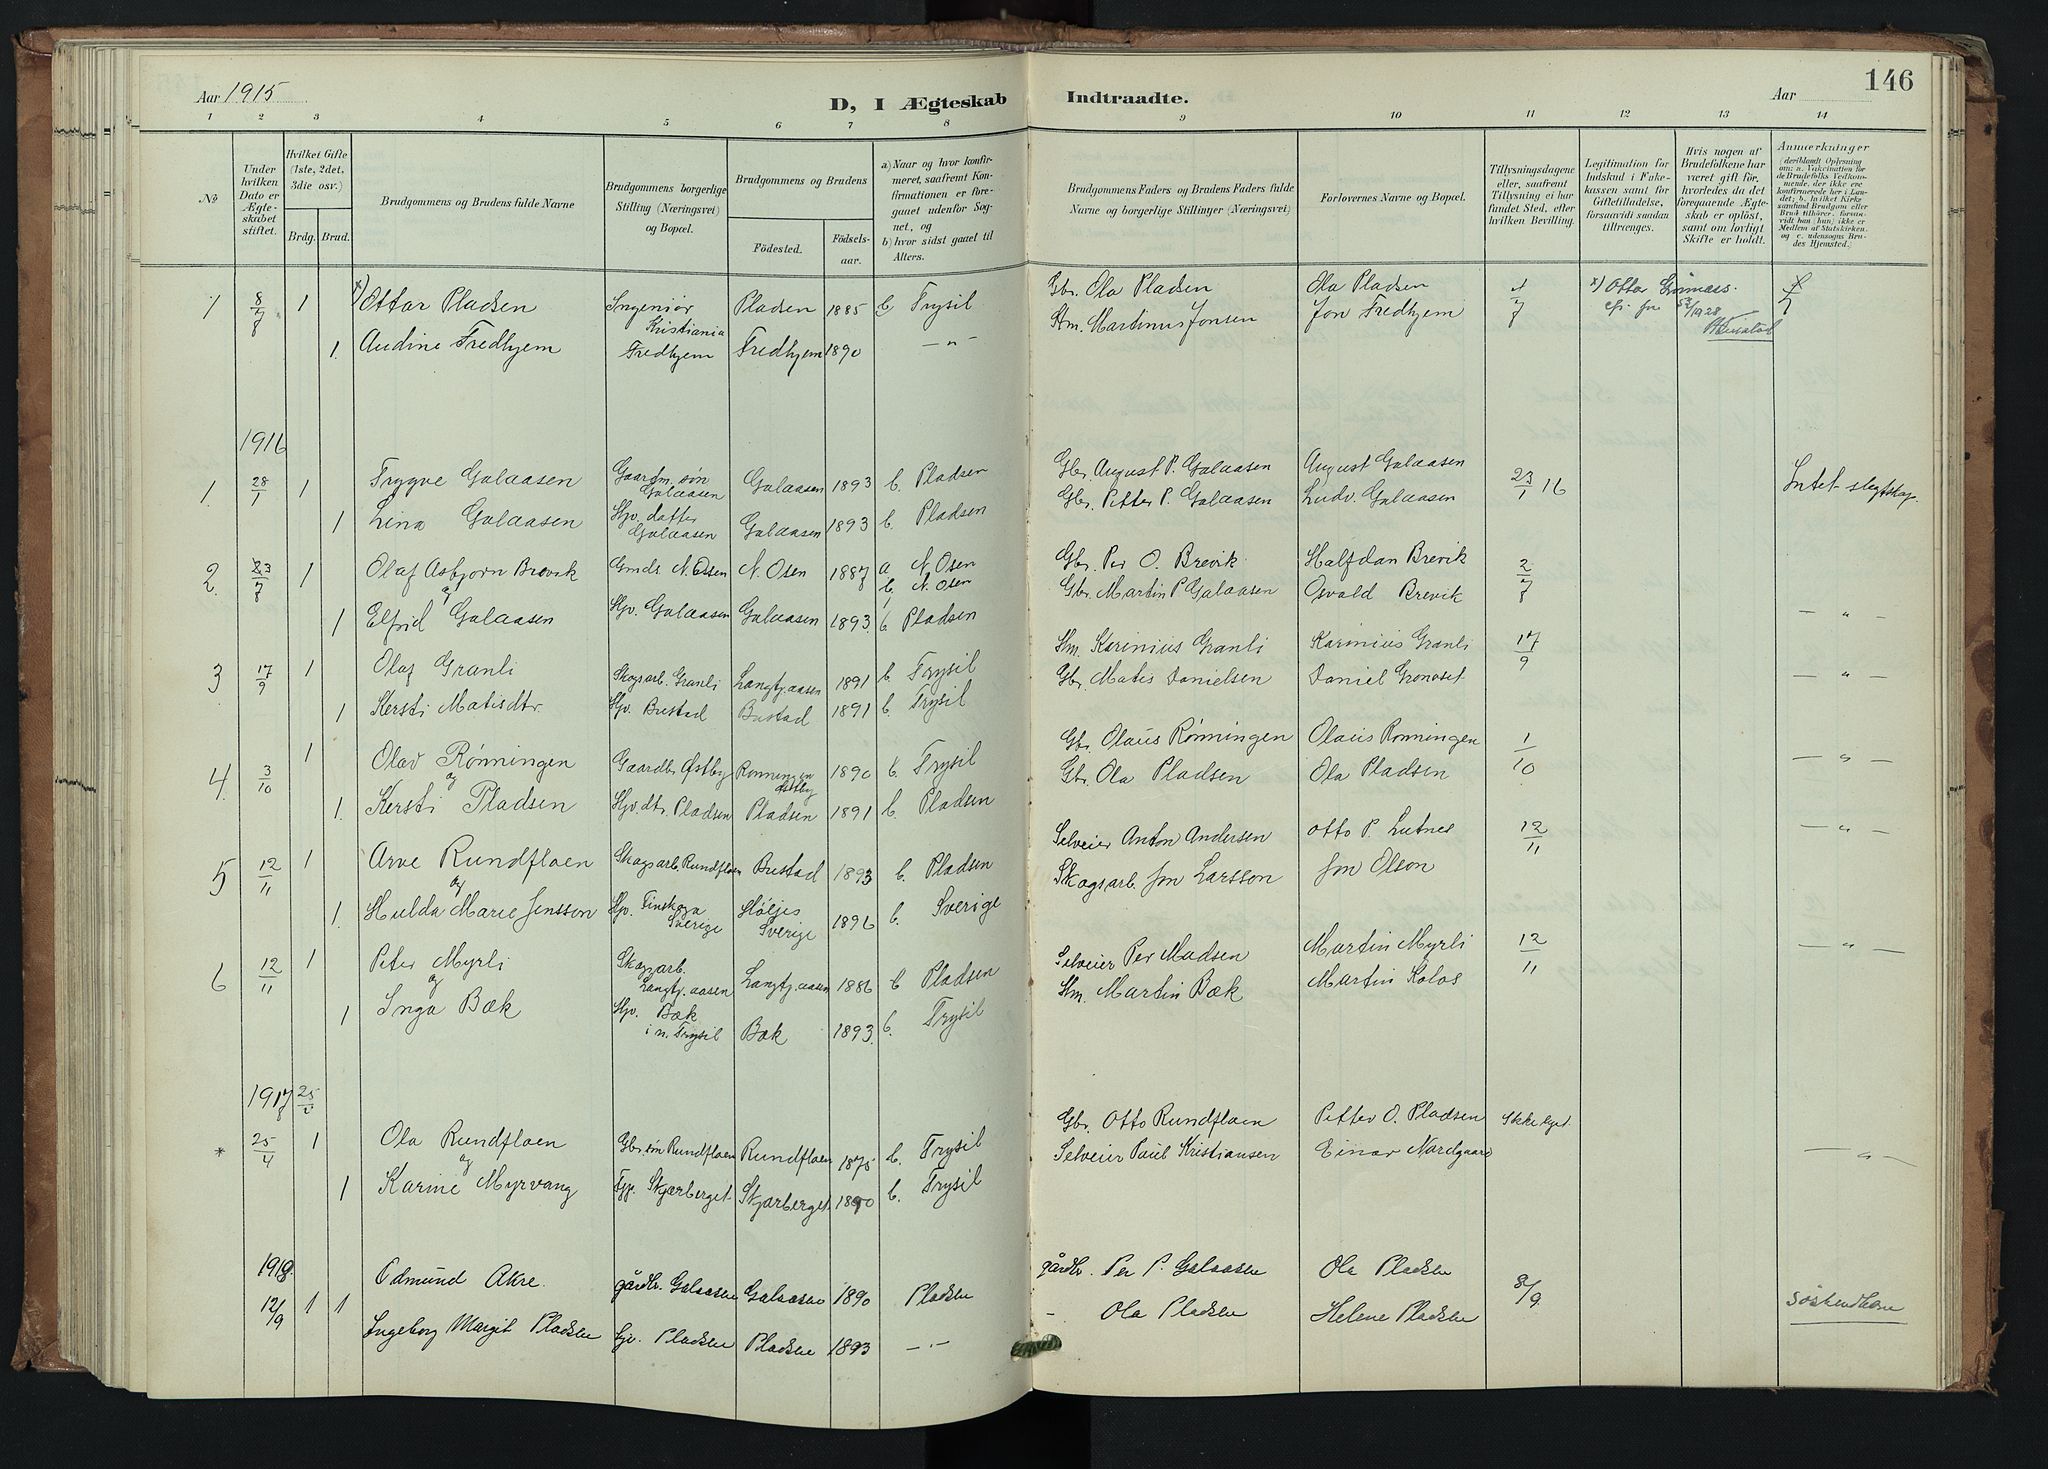 Aar 1915
D, I Ægteskab Indtraadte.
Aar
146
1 2 3 4 5 6 7 8 9 10 11 12 13 14
No
Under hvilken Dato er Ægteskabet stiftet.
Hvilket Gifte (1ste, 2det, 3die osv.)
Brdg. Brud.
Brudgommens og Brudens fulde Navne
Brudgommens borgerlige Stilling (Næringsvei) og Bopæl.
Brudgommens og Brudens
Födested. Födselsaar.
a) Naar og hvor konfirmeret, saafremt Konfirmationen er foregaaet udenfor Sognet, og
b) hvor sidst gaaet til Alters.
Brudgommens Faders og Brudens Faders fulde Navne og borgerlige Stillinger (Næringsvei)
Forlovernes Navne og Bopæl.
Tillysningsdagene eller, saafremt Tillysning ei har fundet Sted, efter hvilken Bevilling.
Legitimation for Indskud i Enkekassen samt for Giftetilladelse, forsaavidt saadan tiltrænges.
Hvis nogen af Brudefolkene har været gift för, hvorledes da det foregaaende Ægteskab er oplöst, samt om lovligt Skifte er holdt.
Anmærkninger (deriblandt Oplysning om: a. Vakcination for de Brudefolks Vedkommende, der ikke ere konfirmerede her i Landet; b. hvilket Kirkesamfund Brudgom eller Brud tilhörer, forsaavidt han (hun) ikke er Medlem af Statskirken, og c. udensogns Brudes Hjemsted.)
1 8/7 1 x) Ottar Pladsen Ingeniör Kristiania Pladsen 1885 b Trysil Gbr. Ola Pladsen Ola Pladsen 4/7 x) Ottar Grönnæss.
1. Audine Fredhjem Fredhjem Fredhjem 1890 — " — Stm. Martinus Jonsen Jon Fredhjem
1916
1. 28/1 1 Trygve Galaasen Gaardm. søn Galaasen Galaasen 1893 b. Pladsen Gbr. August P. Galaasen August Galaasen 23/1 16 Intet slegtskap
1 Lina Galaasen Hjv. datter Galaasen Galaasen 1893 b. Pladsen Gbr. Petter P. Galaasen Ludv. Galaasen
2. 23/7 1 Olaf Asbjørn Brevik Gmds. N. Osen N. Osen 1887 a N. Osen b. N. Osen Gbr. Per O. Brevik Halfdan Brevik 2/7
og
1 Elfrid Galaasen Hjv. Galaasen Galaasen 1893. b Pladsen Gbr. Martin P Galaasen Osvald Brevik — " —
3 17/9 1 Olaf Granli Skogsarb. Granli Langtj.aasen 1891 b Trysil Stm. Karinius Granli Karinius Granli 17/9
1 Kersti Matisdtr. Hjv. Bustad Bustad 1891 b. Trysil Gbr. Matis Danielsen Daniel Gronoset — " —
4. 3/10 1 Olav Rønningen Gaardbr Østby Rønningen Østby 1890 b. Trysil Gbr. Olaus Rønningen Olaus Rønningen 1/10 — " —
og
1. Kersti Pladsen Hjv. dtr. Pladsen Pladsen 1891 b. Pladsen Gbr. Ola Pladsen Ola Pladsen
5 12/11 1 Arve Rundfloen Skogsarb. Rundfloen Bustad 1893 b. Pladsen Selveier Anton Andersen Otto P. Lutnes 12/11 — " —
og
1. Hulda Marie Jensson Hjv. Sverige Höljes Sverige 1896 b. Sverige Skogsarb. Jon Larsson Jon Olson
6 12/11 1 Peter Myrli Skogarb. Langtj.aasen Langtj.aasen 1886 b Pladsen Selveier Per Madsen Martin Myrli 12/11 — " —
og
1 Inga Bæk Hjv. Bæk i n. Trysil Bæk 1893. b. Trysil Stm. Martin Bæk Martin Kolos
1917
* 25/4 1 Ola Rundfloen Gbr. søn Rundfloen Rundfloen 1875 b. Trysil Gbr. Otto Rundfloen Petter O. Pladsen
og
1 Karine Myrvang Skjærberget Skjærberget 1890 b. Trysil Selveier Paul Kristiansen Einar Nordgaard — " —
1918.
12/9 1 1 Odmund Akre. gårdbr. Galaasen Galaasen 1890 Pladsen gårdbr. Per P. Galaasen Ola Pladsen 8/9
Ingeborg Margit Pladsen Pladsen Pladsen 1893 — " — - Ola Pladsen Helene Pladsen söskendbarn